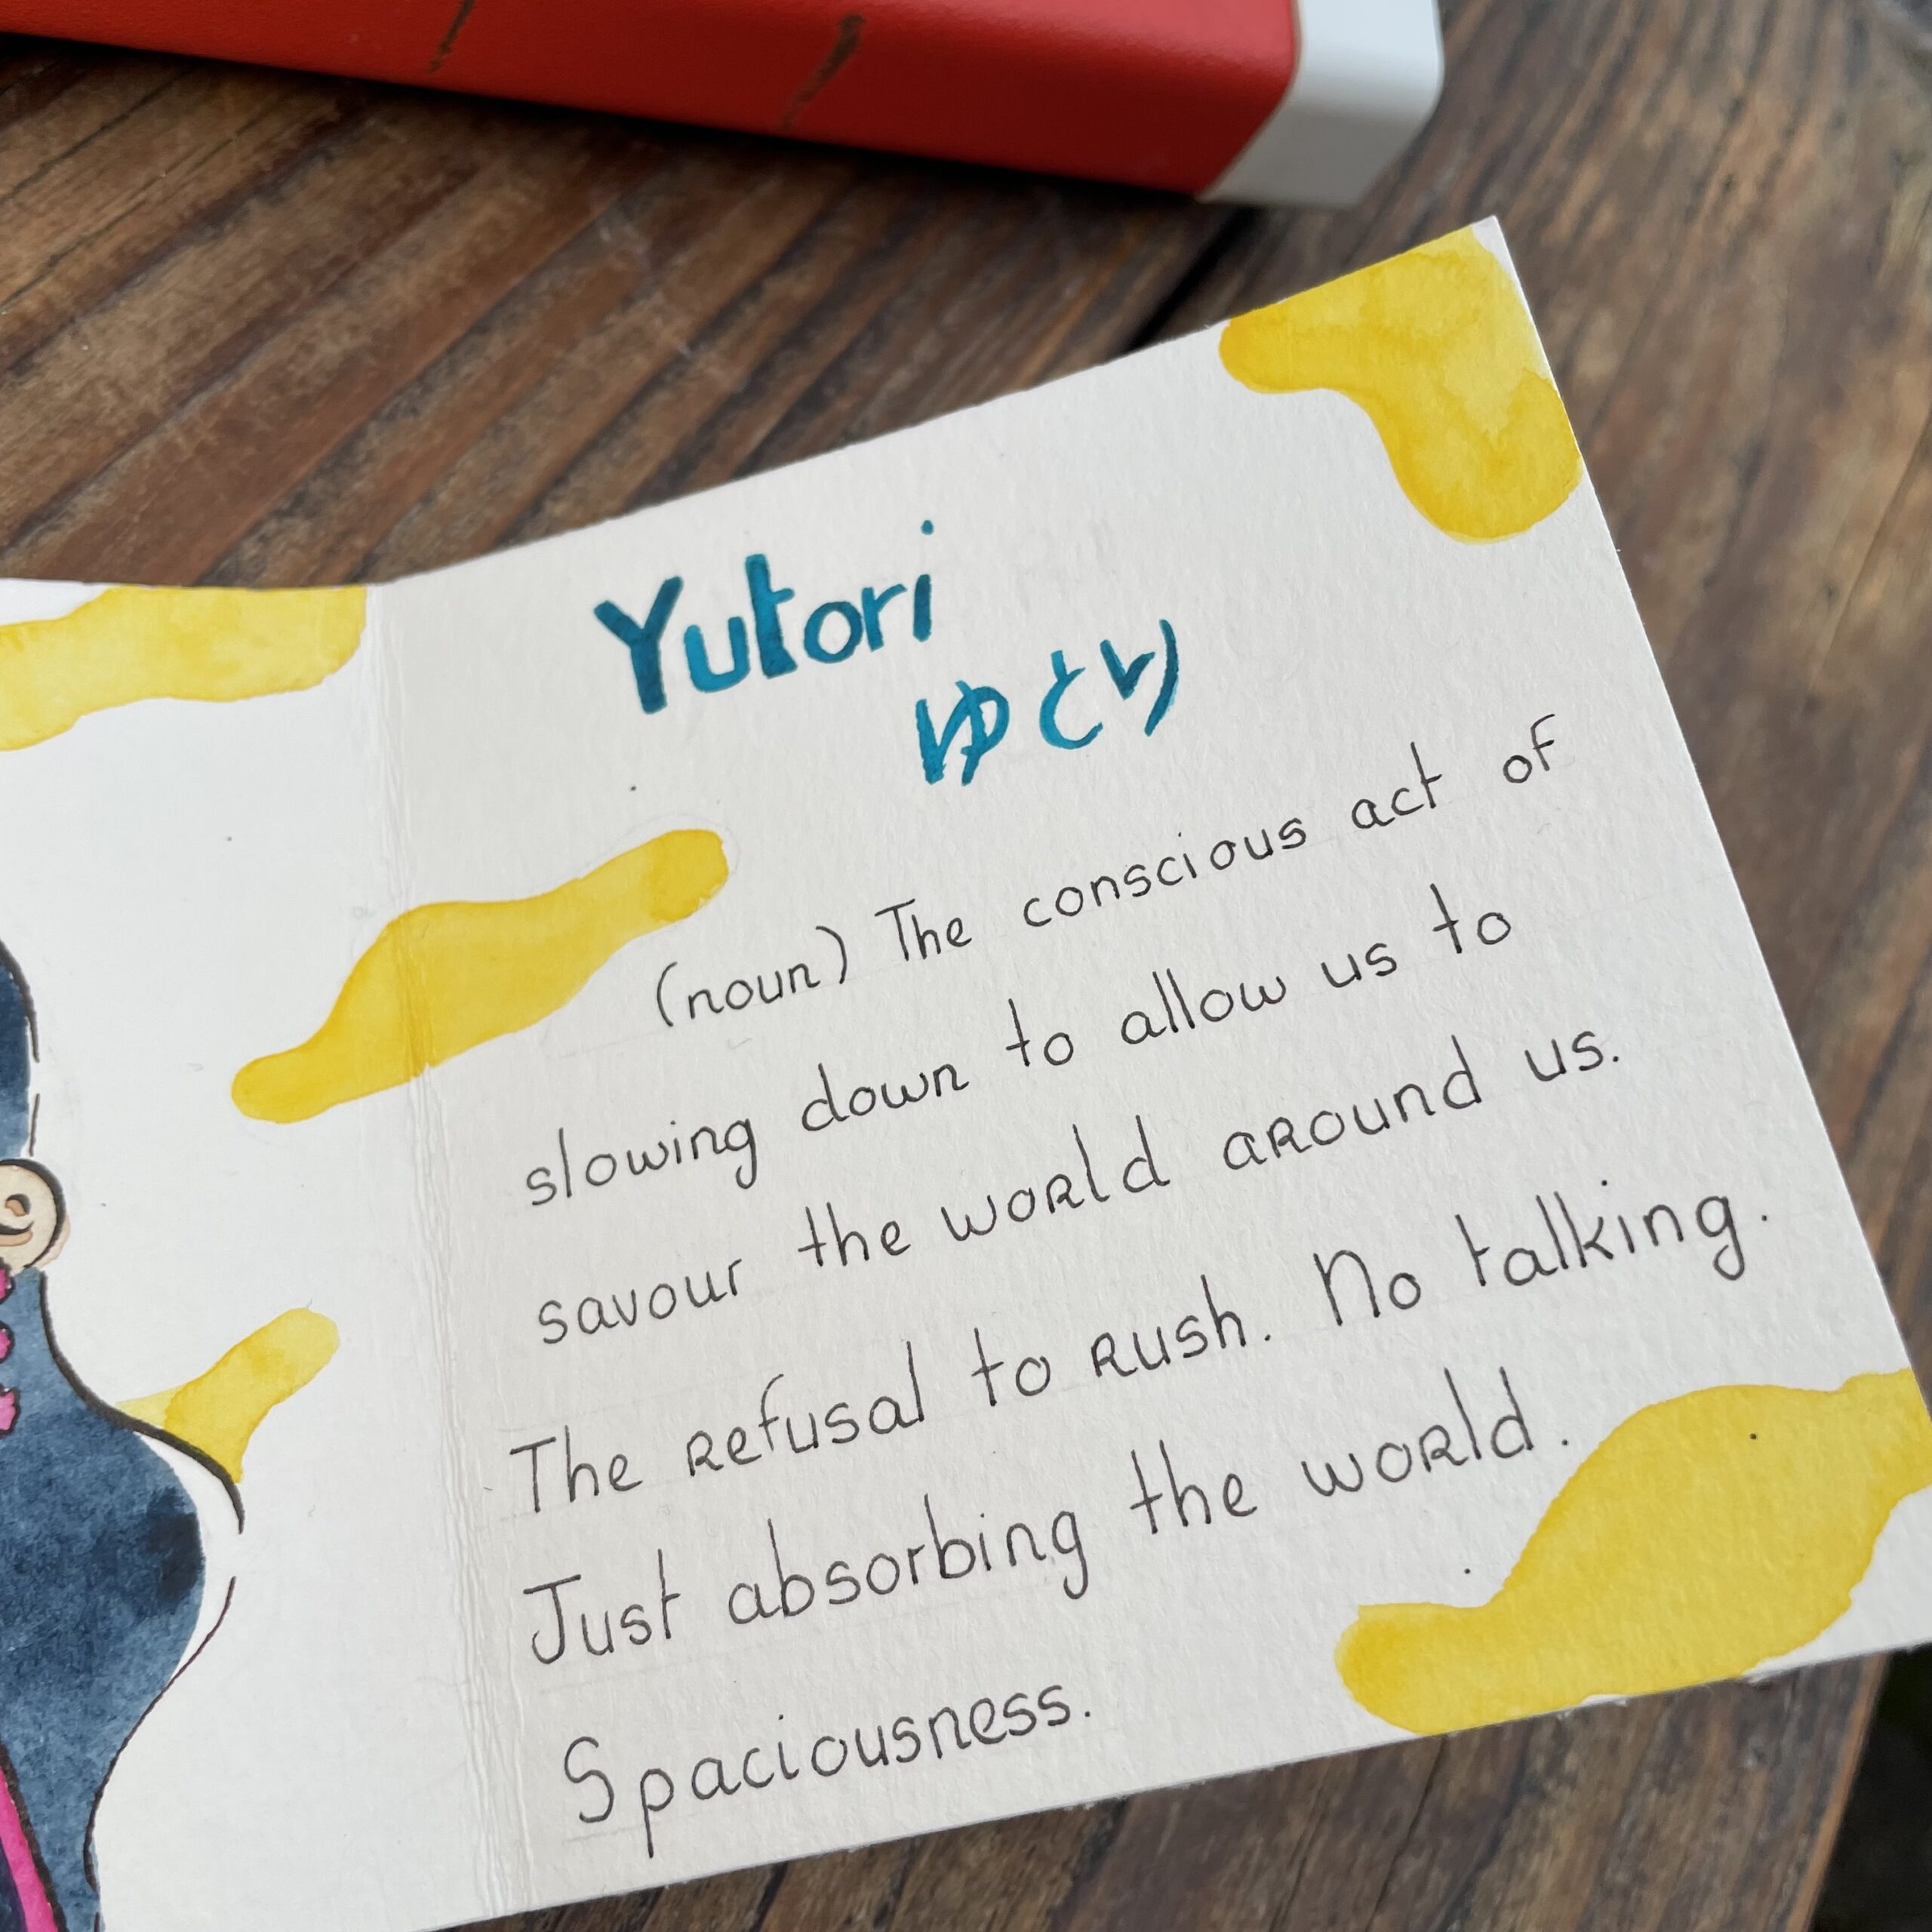 Yutori
ゆとり
(noun) The conscious act of
slowing down to allow us to
savour the world around us.
The refusal to rush. No talking.
Just absorbing the world.
Spaciousness.